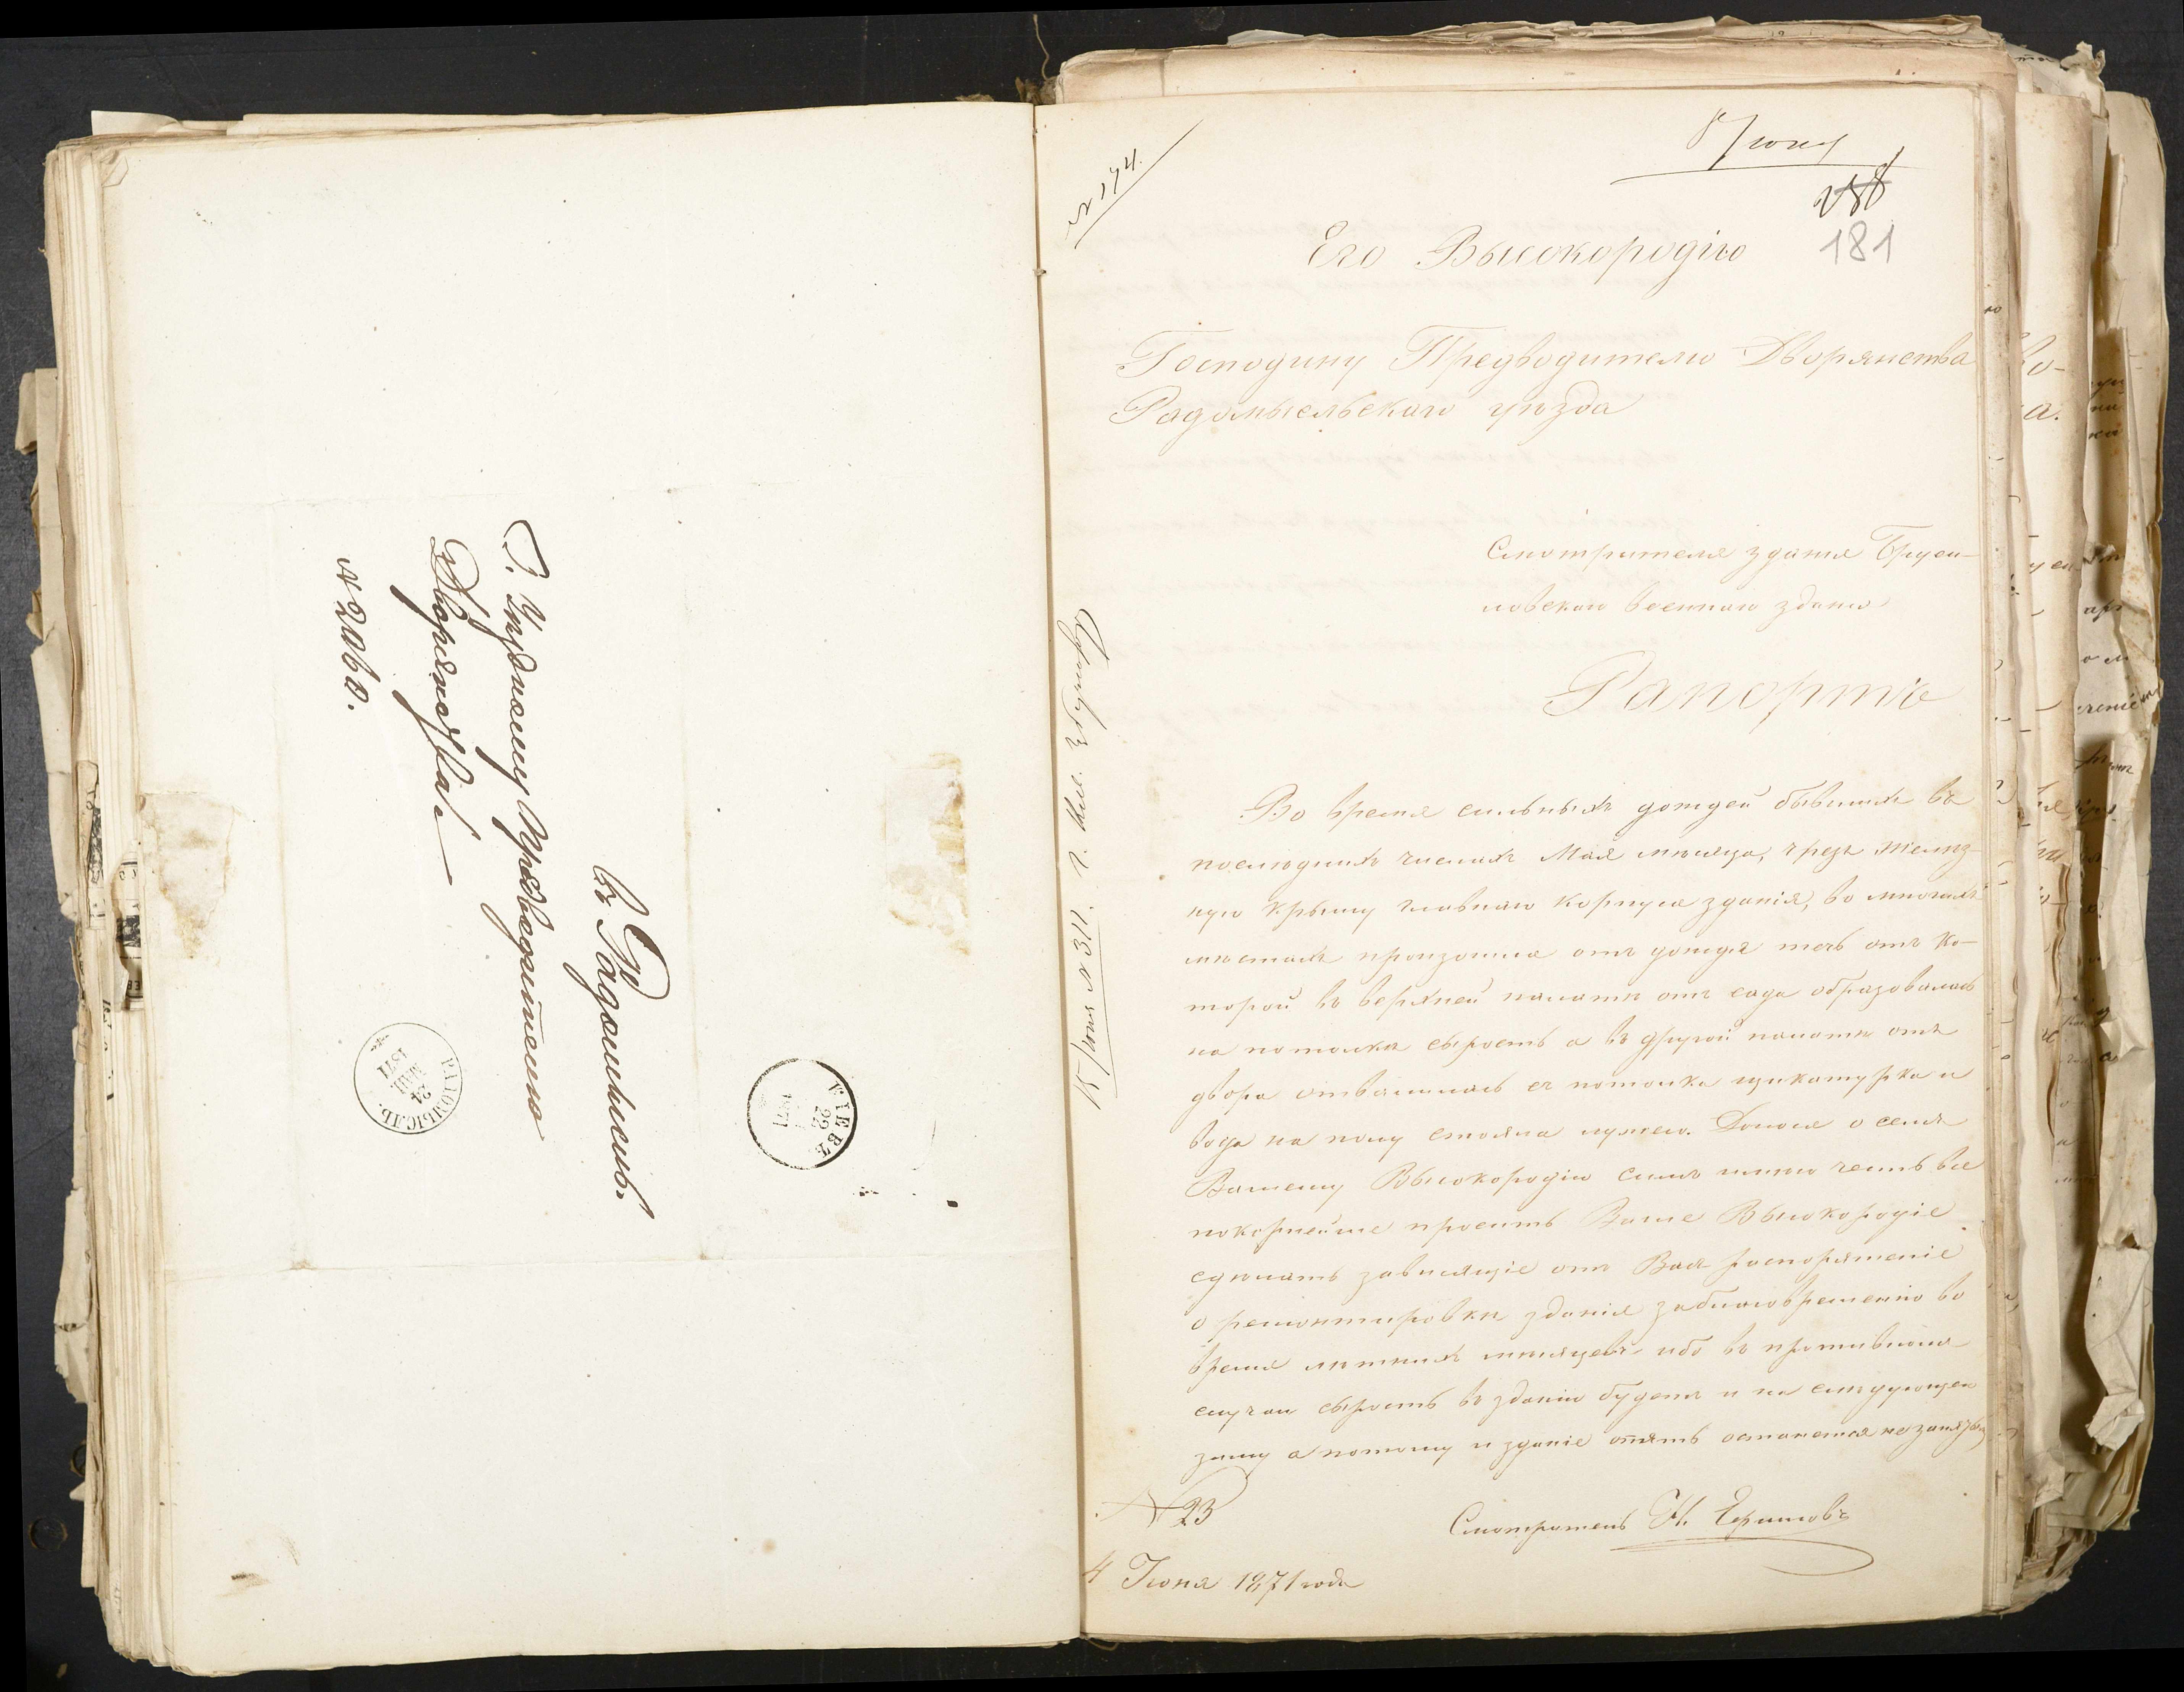 Г. Уѣздному Предводителю
Дворянства.
№ 2060.
въ Радомысль.
РАДОМЫСЛЬ.
24
МАЙ
1871
КІЕВЪ
22
1871
№ 194.
8 Іюня
181
Его Высокородію
Господину Предводителю Дворянства
Радомысльскаго уѣзда
Смотрителя зданія Бруси-
ловскаго военнаго зданія
Рапортъ
Во время сильныхъ дождей бывшихъ въ
послѣднихъ числахъ Мая мѣсяца, чрезъ желѣз-
ную крышу главнаго корпуса зданія, во многихъ
мѣстахъ произошла отъ дождя течь отъ ко-
торой въ верхней палатѣ отъ сада образовалась
на потолкѣ сырость а въ другой палатѣ отъ
двора отвалилась съ потолка щикатурка и
вода на полу стояла лужею. Донося о семъ
Вашему Высокородію симъ имѣю честь все
покорнейше просить Ваше Высокородіе
сдѣлать зависящіе отъ Васъ распоряженіе
о ремонтировки зданія заблаговременно во
время лѣтнихъ мѣсяцевъ ибо въ противномъ
случаи сырость въ зданіи будетъ и на слѣдующею
зиму а потому и зданіе опять останется не занято
№ 23
Смотритель Н.
4 Іюня 1871 года